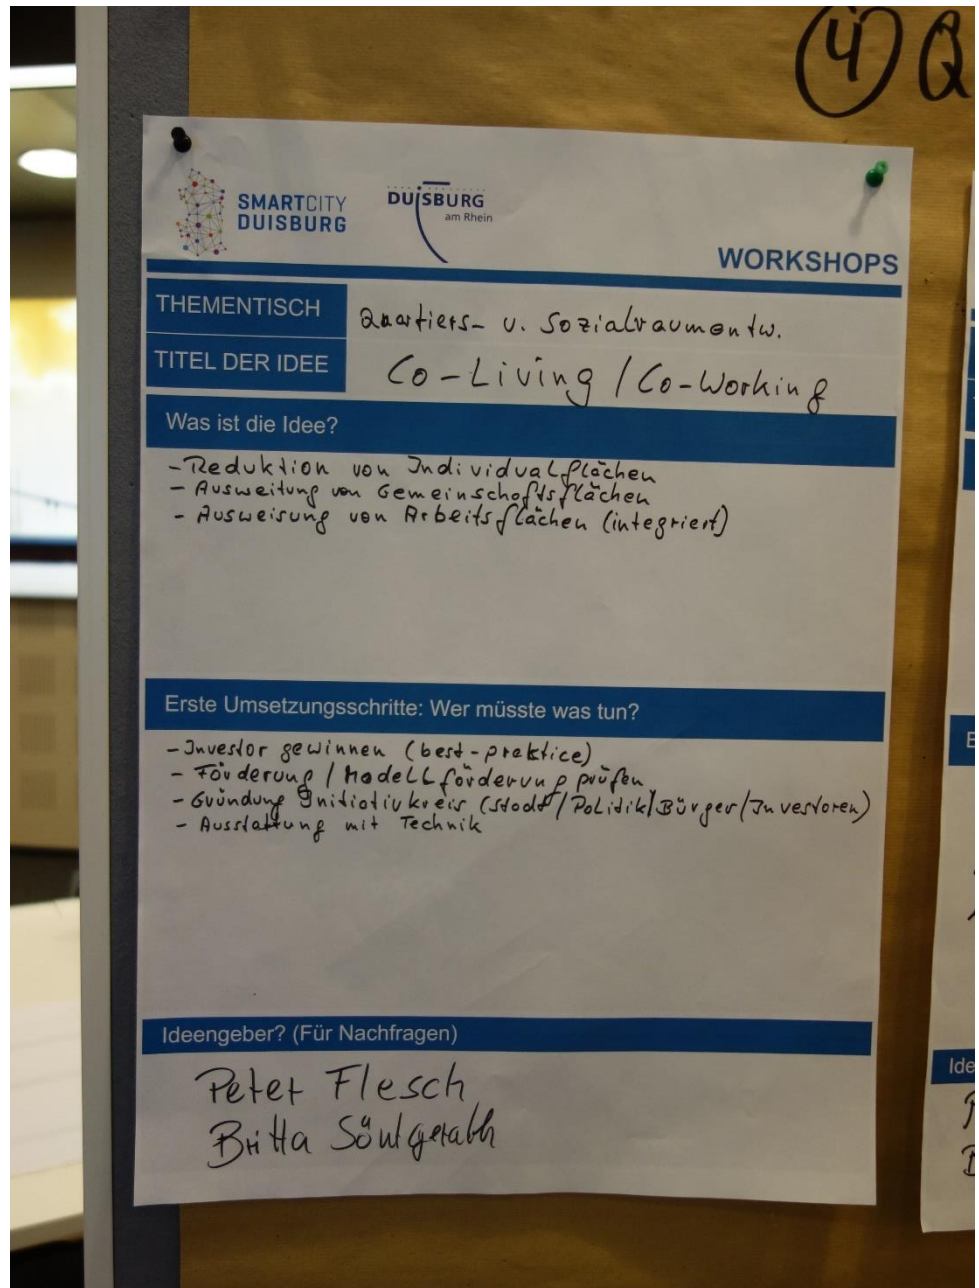 4 Q
SMARTCITY
DUISBURG
DUISBURG
am Rhein
WORKSHOPS
THEMENTISCH
Quartiers- u. Sozialraumentw.
TITEL DER IDEE
Co-Living / Co-Working
Was ist die Idee?
- Reduktion von Individualflächen
- Ausweitung von Gemeinschaftsflächen
- Ausweisung von Arbeitsflächen (integriert)
Erste Umsetzungsschritte: Wer müsste was tun?
- Investor gewinnen (best-praktice)
- Förderung / Modellförderung prüfen
- Gründung Initiativkreis (Stadt/Politik/Bürger/Investoren)
- Ausstattung mit Technik
Ideengeber? (Für Nachfragen)
Peter Flesch
Britta Söntgerath
E
Ide